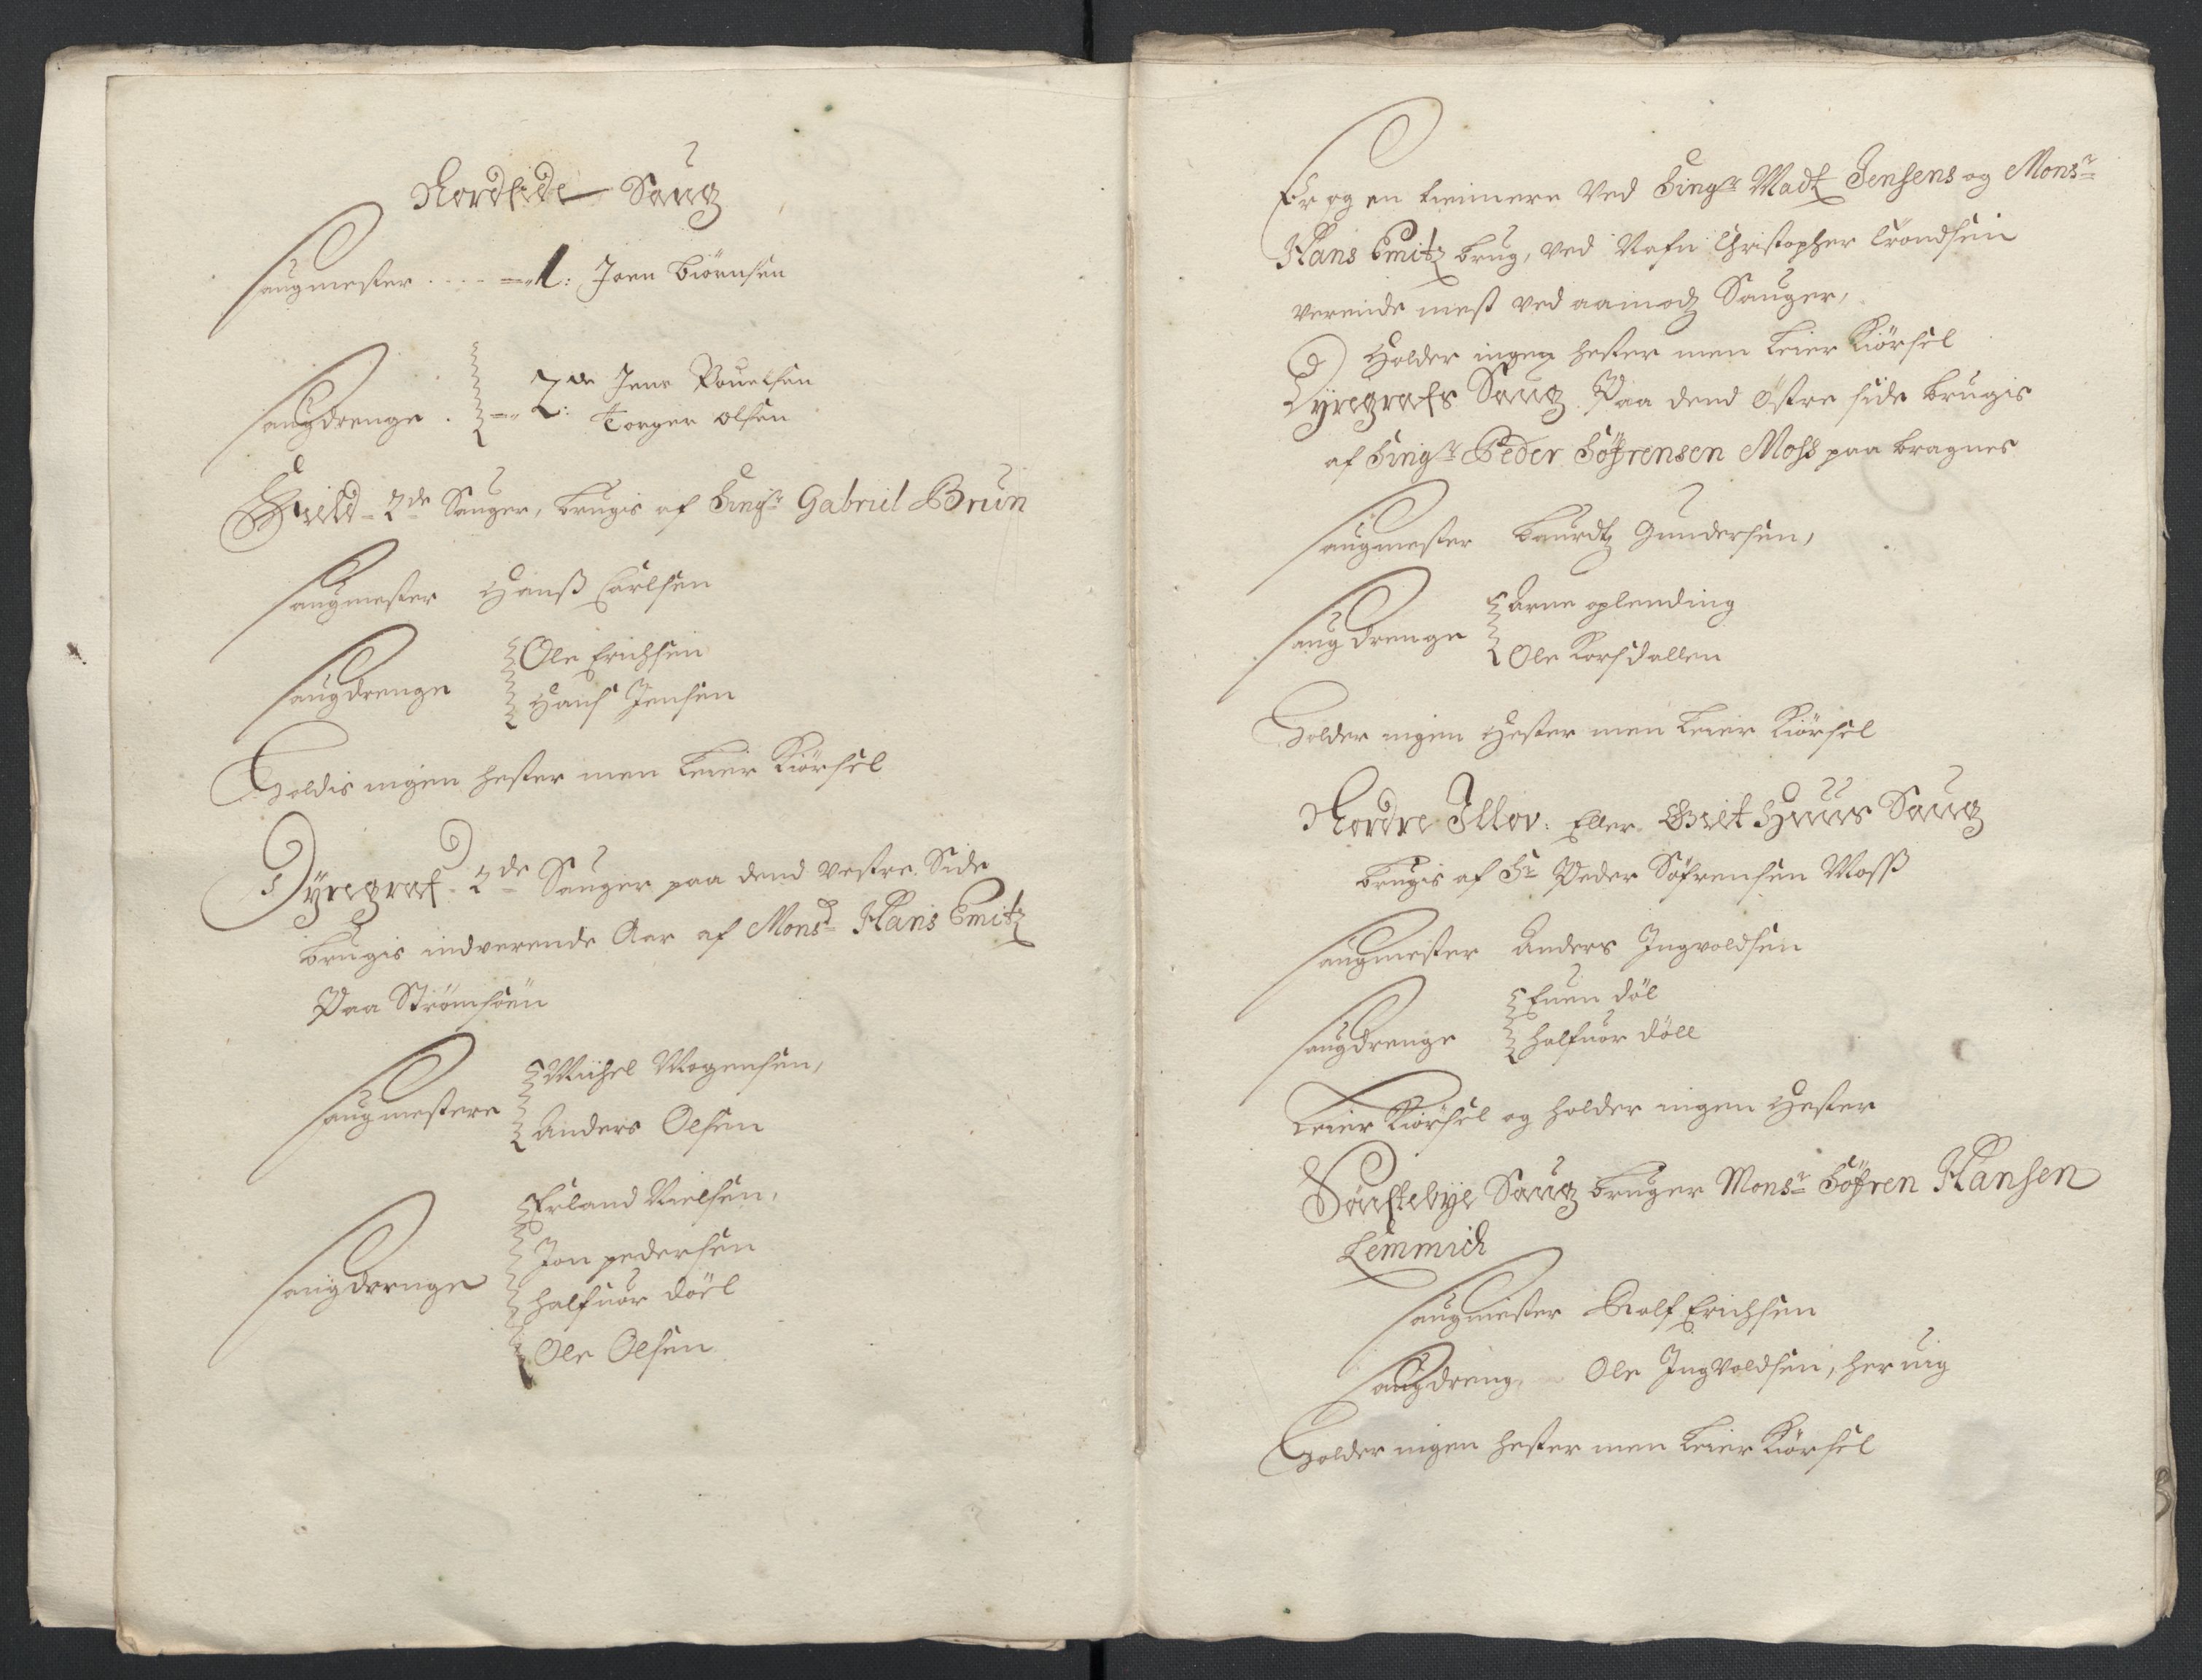 Nordside Saug
Saugmester . . . . 1: Joen Biörnsen
Saugdrenge . 2: de Jens Pouelsen
Torger olsen
2de Sauger, brugis af Sing:r Gabriel Brun
Saugmester Hanß Carlsen
Saugdrenge Ole Erichsen
Hans Jensen
Holdis ingen hester men Leier Kiörsel
Dÿregraf 2de Sauger paa dend vestre Side
brugis indverende Aar af Mons:r Hans Smitz
Paa Strömsöen
Saugmestere Michel Mogensen,
Anders Olsen
Saugdrenge Erland Nielsen,
Jon pedersen
Halfuor döel
Ole Olsen
Er og en temmere Ved Sing:r Madtz Jensens og Mons:r
Hans Smitz brug, ved Nafn Christopher Tröndsen
verende mest ved aamodtz Sauger,
Holder ingen hester men Leier Kiörsel
Dyregrafs Saug Paa dend östre side brugis
af Sing:r Peder Söfrensen Moss paa bragnes
Saugmester Laurdtz Gundersen,
Saugdrenge Arne oplending
Ole Korsdallen
Holder ingen Hester men Leier Kiörsel
Nordre Illov: Eller Huus Saug
brugis af S:r Peder Söfrensen Moss
Saugmester Anders Ingvoldsen
Saugdrenge Euen döl
Halfuor döll
Leier Kiörsel og holder ingen Hester
Saug bruger Mons:r Söfren Hansen
Lemmich
Saugmester Rolf Erichsen
Saugdreng Ole Ingvoldsen, heruig
Holder ingen hester men Leier Kiörsel